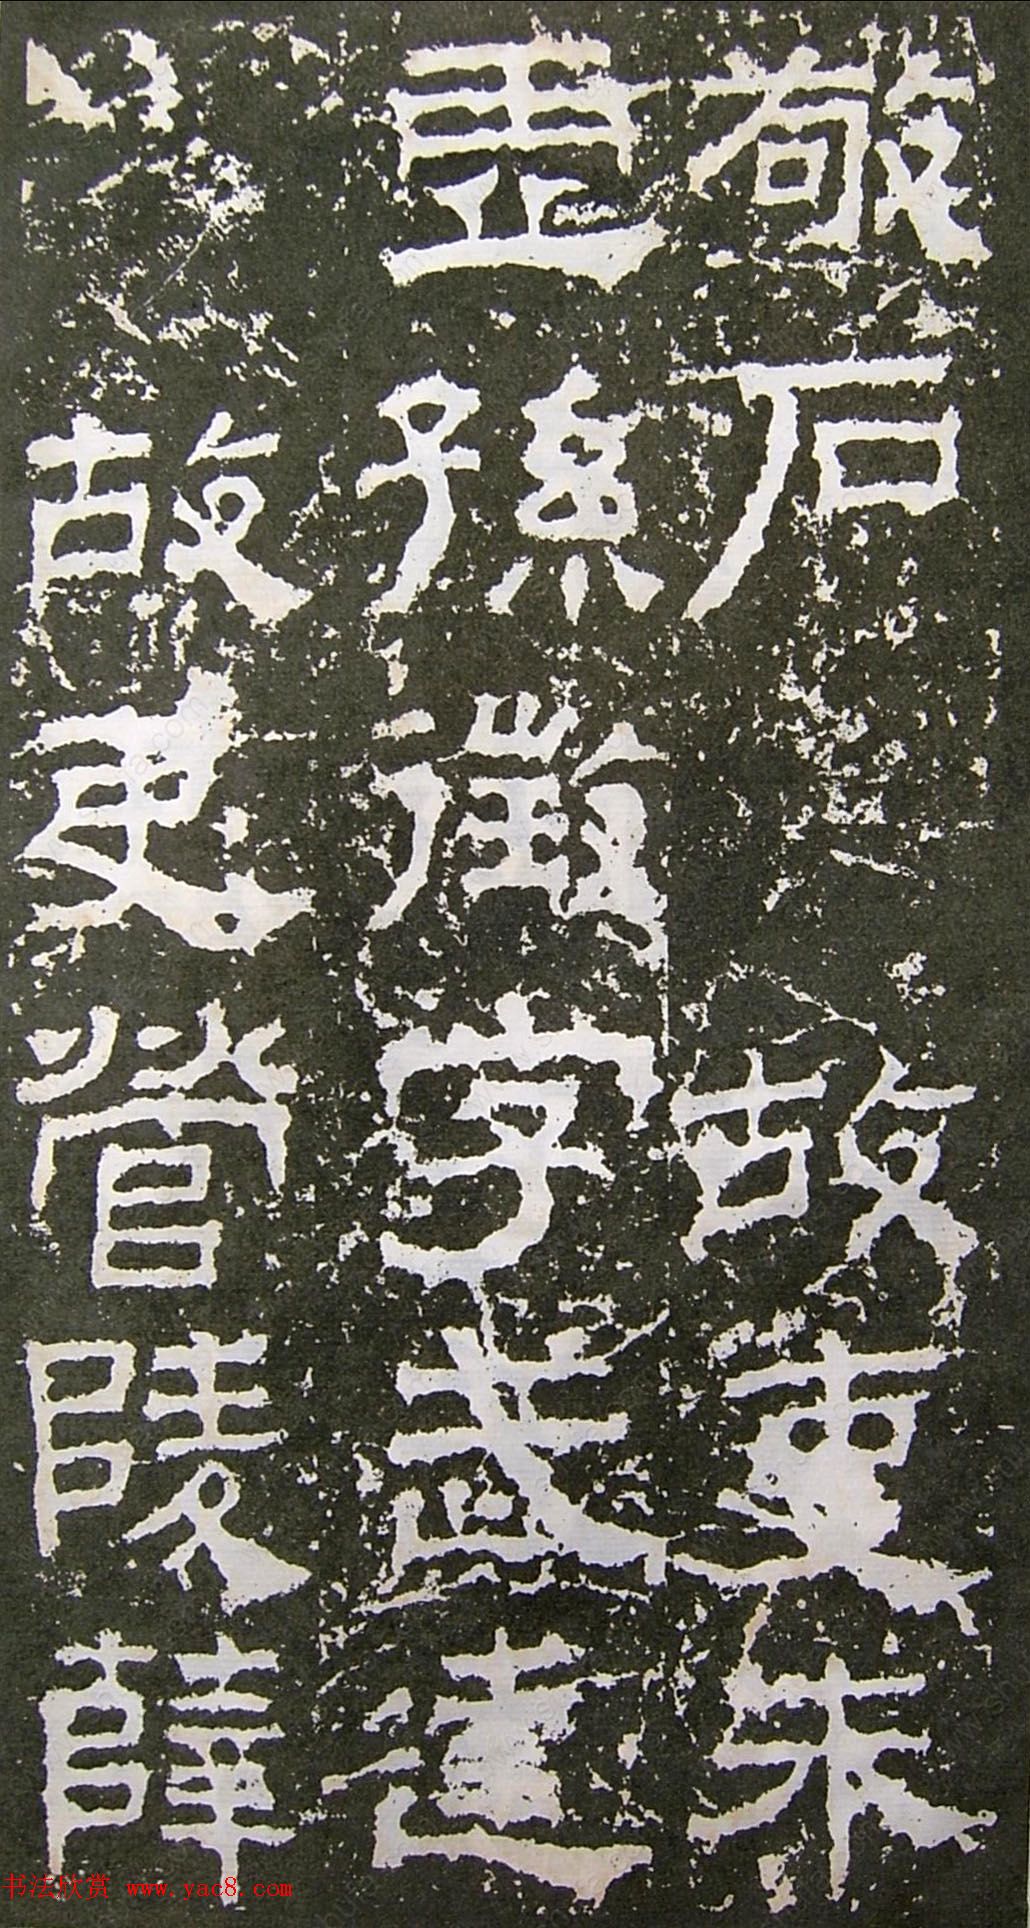 敬石故吏朱
虛孫徵字武達
故吏營陵薛
书法欣赏 www.yac8.com